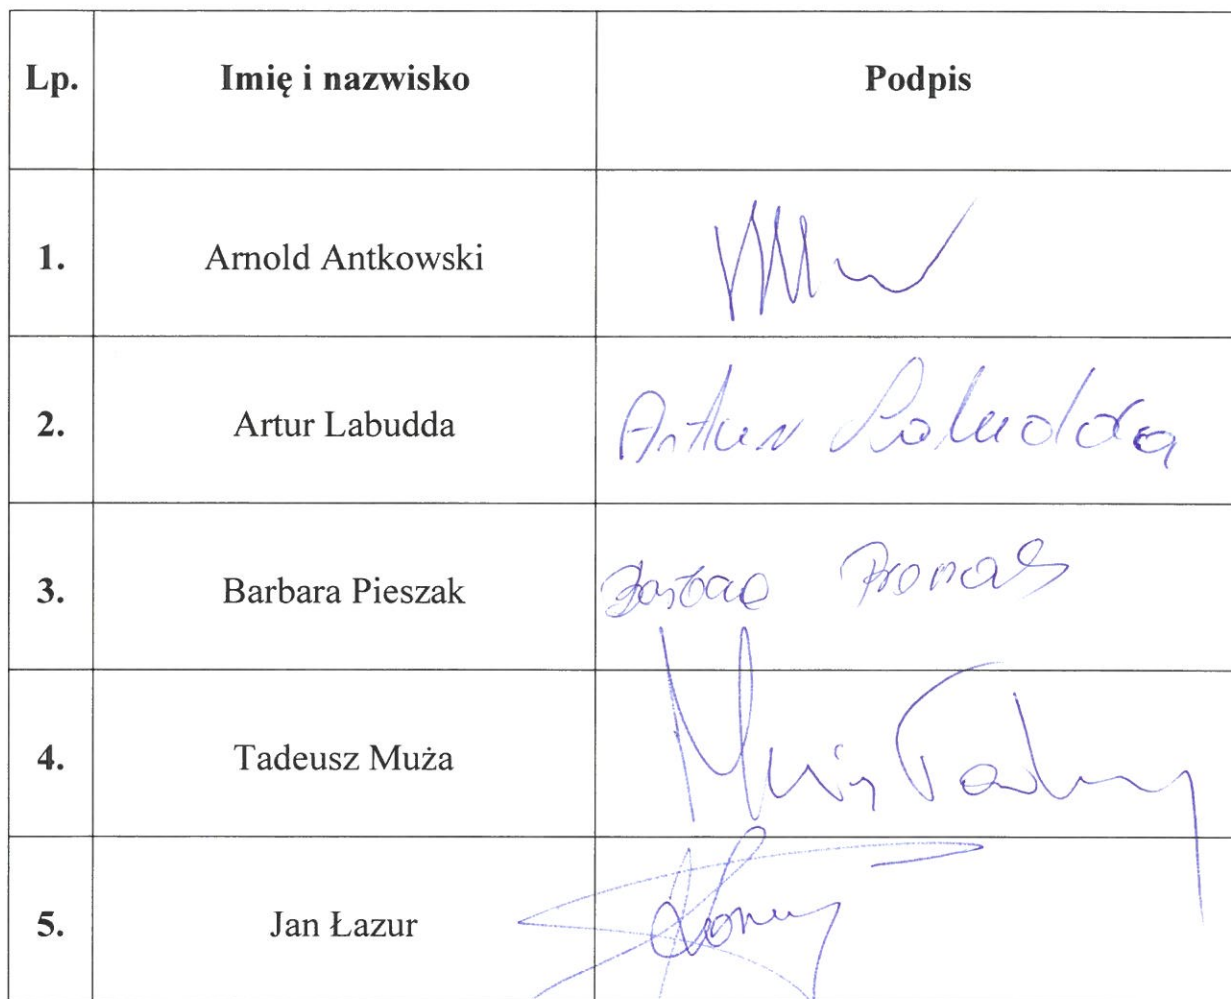 Lp. Imię i nazwisko Podpis
1. Arnold Antkowski
2. Artur Labudda Artur Labudda
3. Barbara Pieszak Barbara
4. Tadeusz Muża
5. Jan Łazur